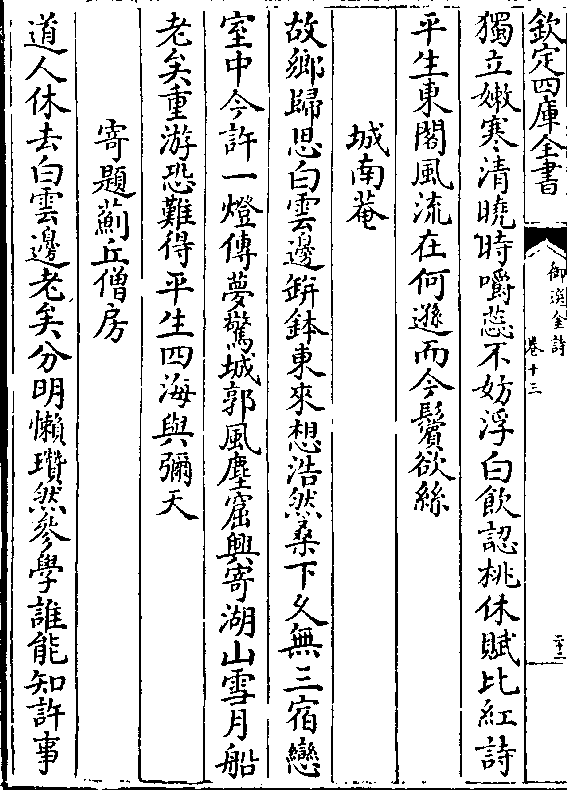 欽定四庫全書
御選金詩
卷十三
二十二
獨立嫩寒清曉時嚼蕊不妨浮白飲認桃休賦比紅詩
平生東閣風流在何遜而今鬢欲絲
城南菴
故鄉歸思白雲邊缾鉢東來想浩然桑下久無三宿戀
室中今許一燈傳夢驚城郭風塵窟興寄湖山雪月船
老矣重游恐難得平生四海與彌天
寄題薊丘僧房
道人休去白雲邊老矣分明懶瓚然參學誰能知許事